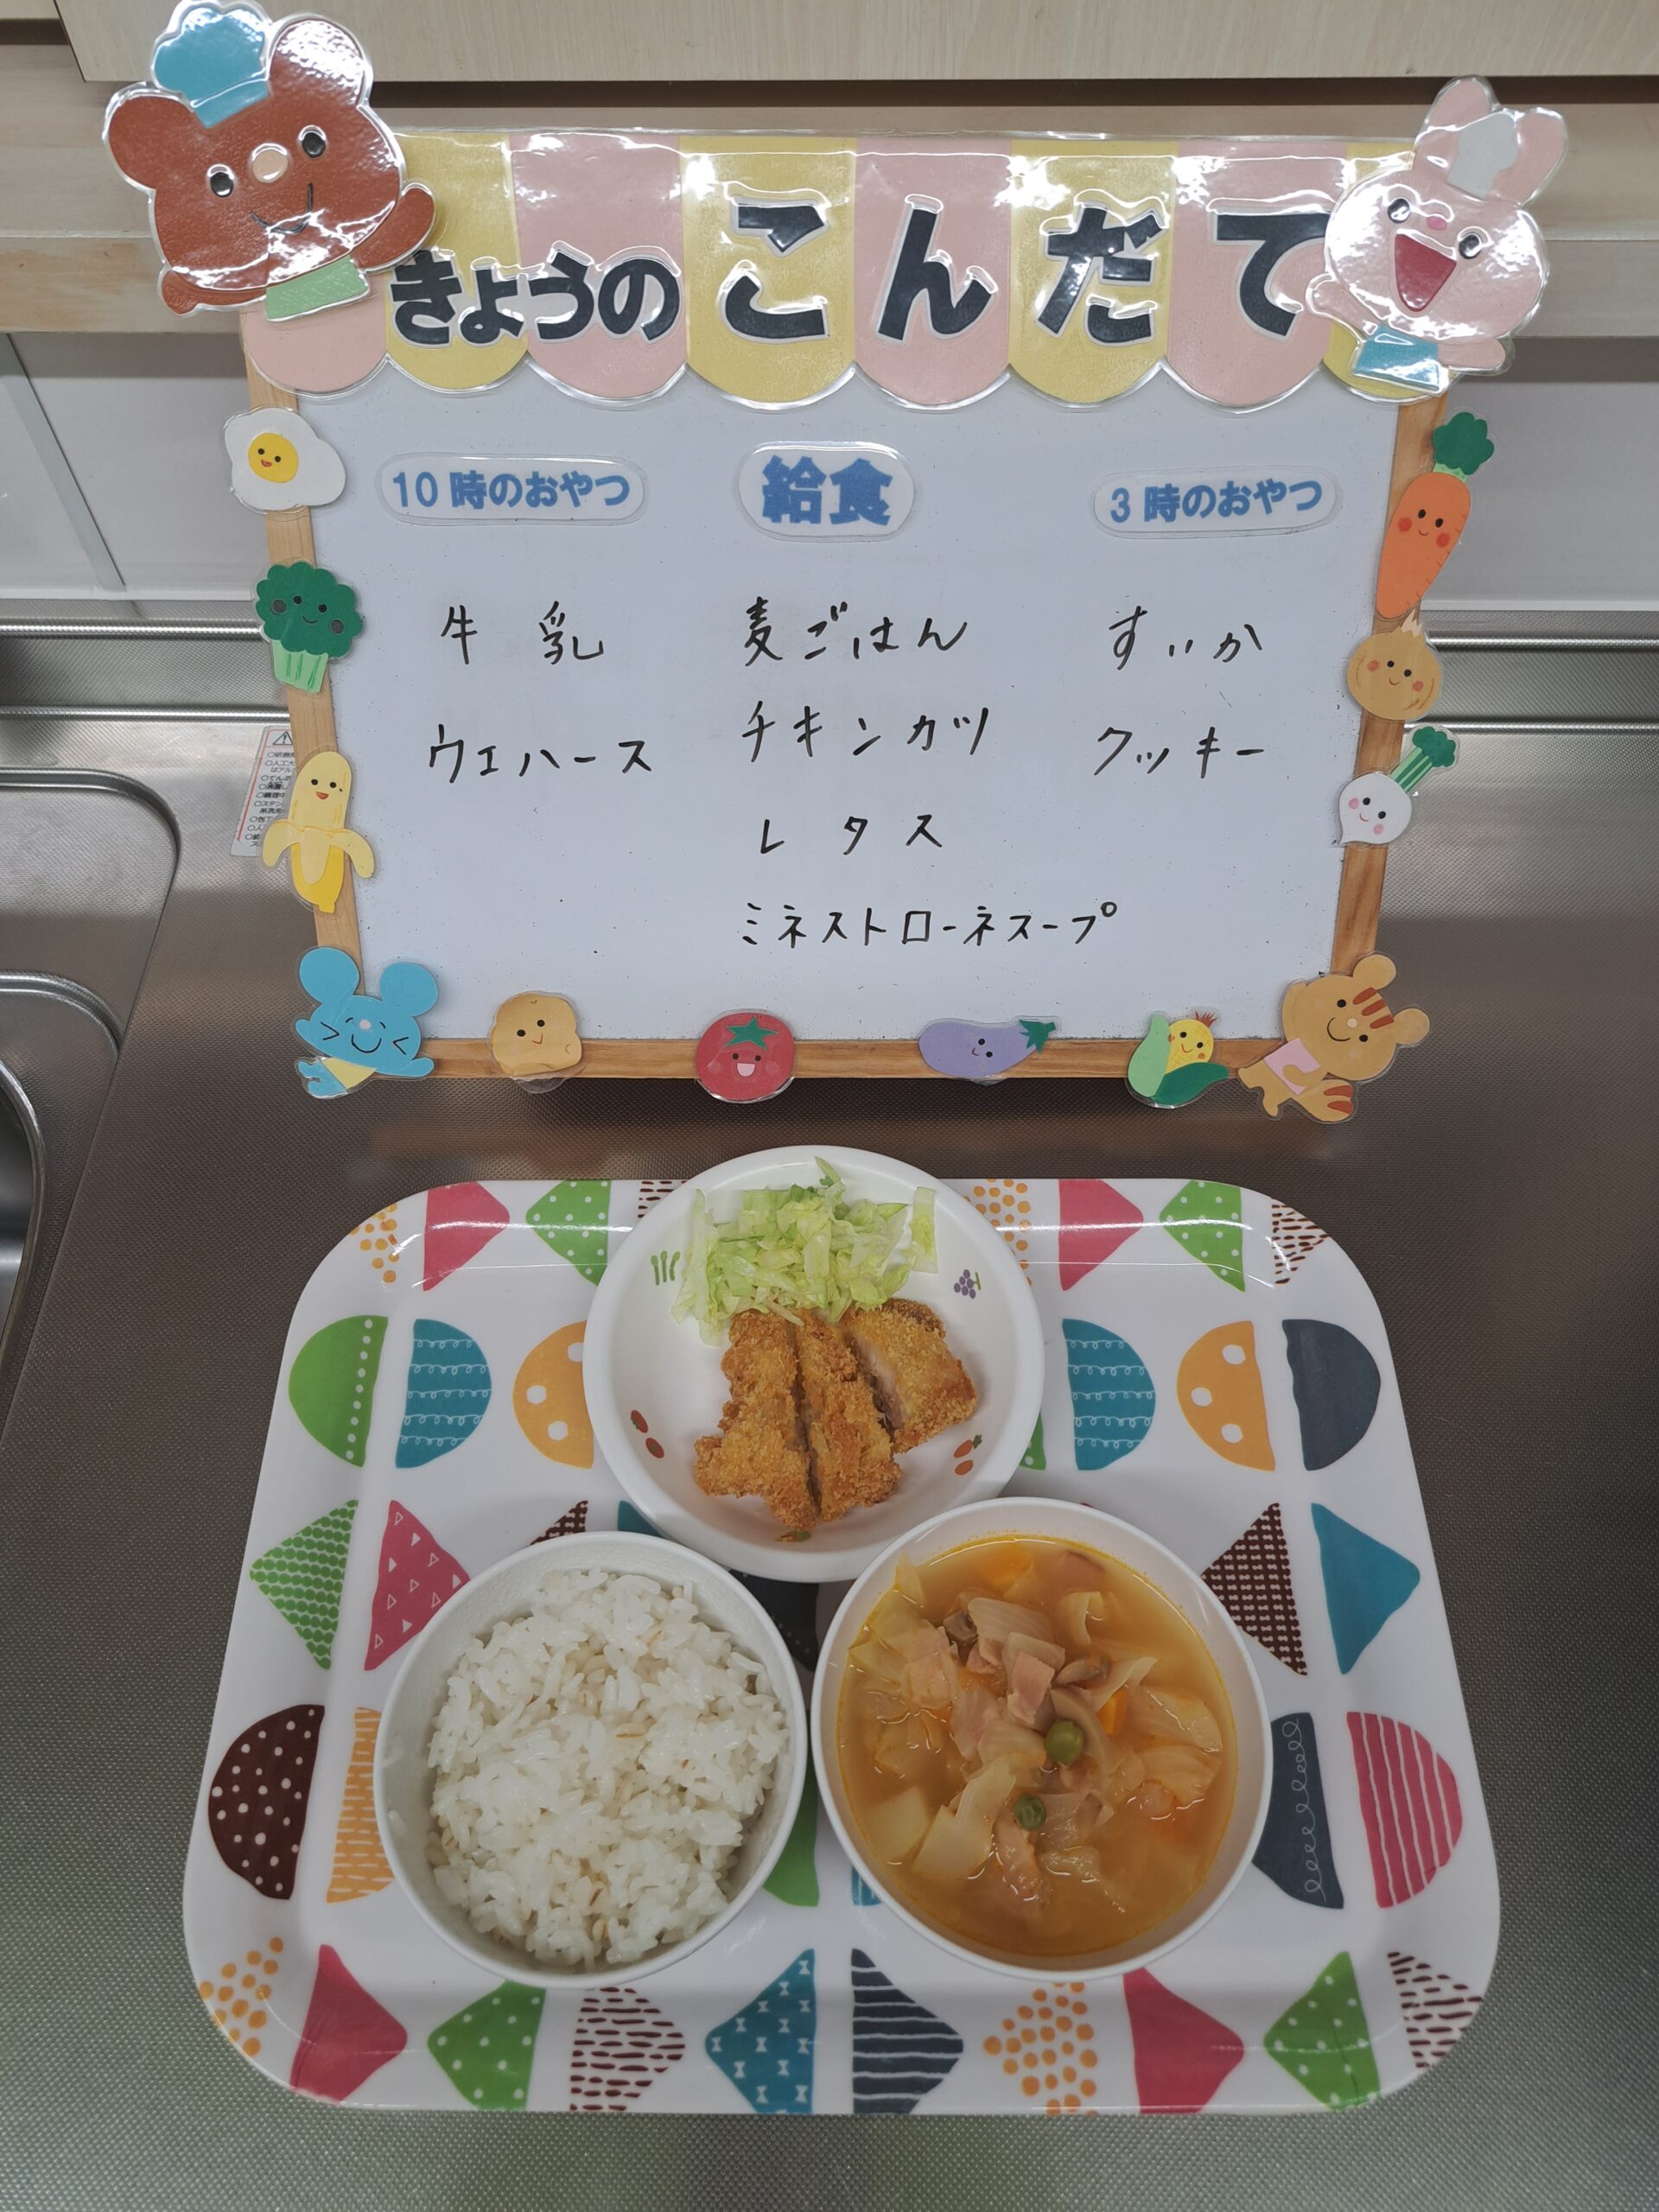 きょうの こんだて
10時のおやつ
牛乳
ウエハース
給食
麦ごはん
チキンカツ
レタス
ミネストローネスープ
3時のおやつ
すいか
クッキー